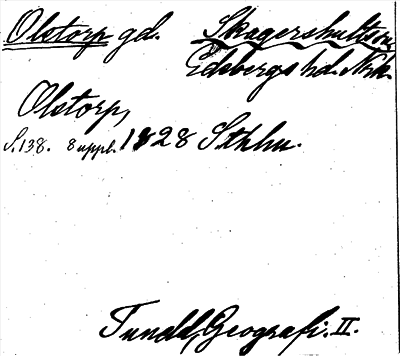 Olstorp gd. Skagershults sn
Edsbergs hd. Nrk.
Olstorp,
S. 138. 8 uppl. 1828 Sthlm.
Tuneld, Geografi. II.